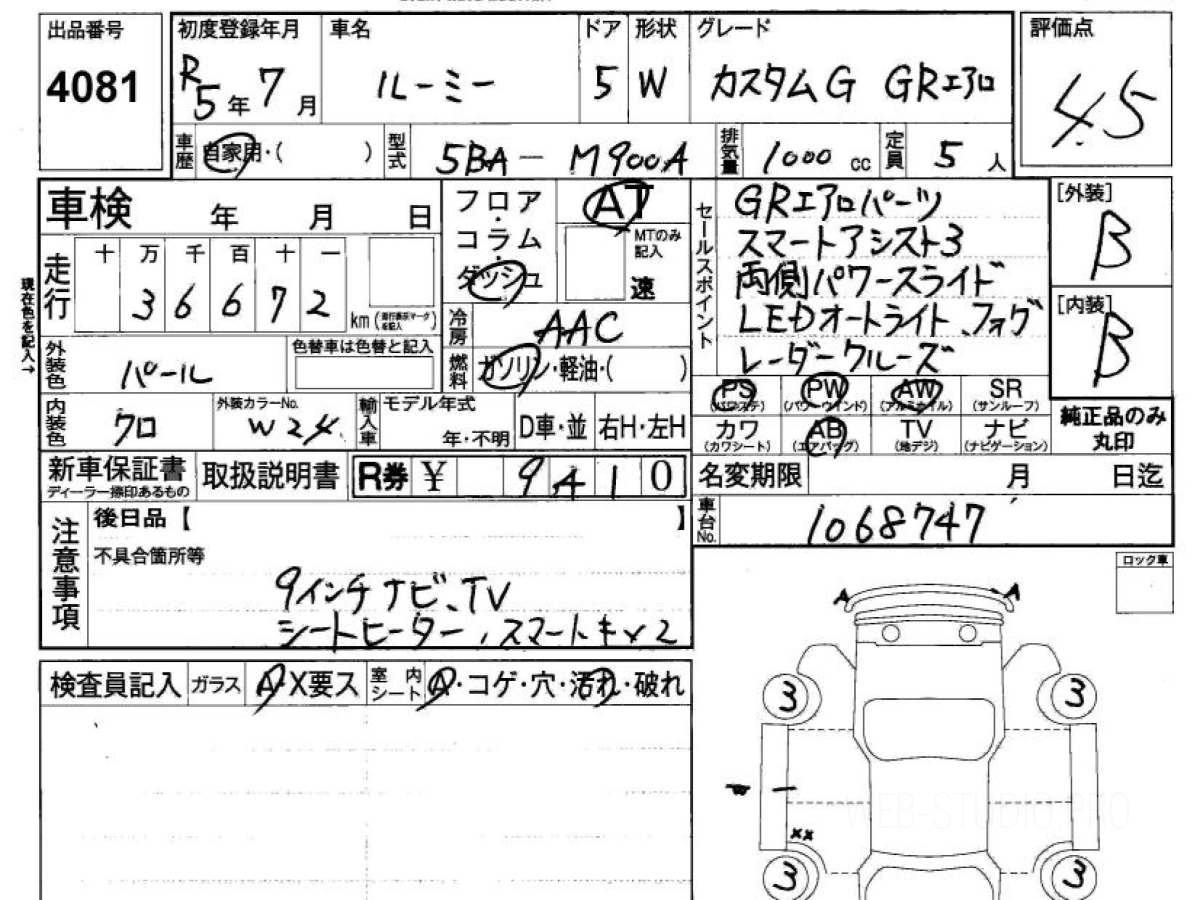 出品番号
4081
初度登録年月
R5年7月
車名
ルーミー
ドア
5
形状
W
グレード
カスタムG GRエアロ
評価点
4.5
車歴
自家用・( )
型式
5BA－M900A
排気量
1000 cc
定員
5人
車検 年 月 日
走行
十 万 千 百 十 一
3 6 6 7 2 km
(走行表示マークを記入)
現在色を記入→
フロア・コラム・ダッシュ
AT
MTのみ記入
速
冷房
AAC
燃料
ガソリン・軽油・( )
セールスポイント
GRエアロパーツ
スマートアシスト3
両側パワースライド
LEDオートライト、フォグ
レーダークルーズ
[外装]
B
[内装]
B
外装色
パール
色替車は色替と記入
内装色
クロ
外装カラーNo.
W24
輸入車
モデル年式
年・不明
D車・並
右H・左H
PS
(パワステ)
PW
(パワーウインド)
AW
(アルミホイル)
SR
(サンルーフ)
カワ
(カワシート)
AB
(エアバッグ)
TV
(地デジ)
ナビ
(ナビゲーション)
純正品のみ
丸印
新車保証書
ディーラー捺印あるもの
取扱説明書
R券 ¥ 9 4 1 0
名変期限 月 日迄
車台No.
1068747
注意事項
後日品【 】
不具合箇所等
9インチナビ、TV
シートヒーター、スマートキ×2
ロック車
検査員記入
ガラス
A・X要ス
室内シート
A・コゲ・穴・汚れ・破れ
A A
3 3
W
XX
3 3
WEB-STUDIO.PRO